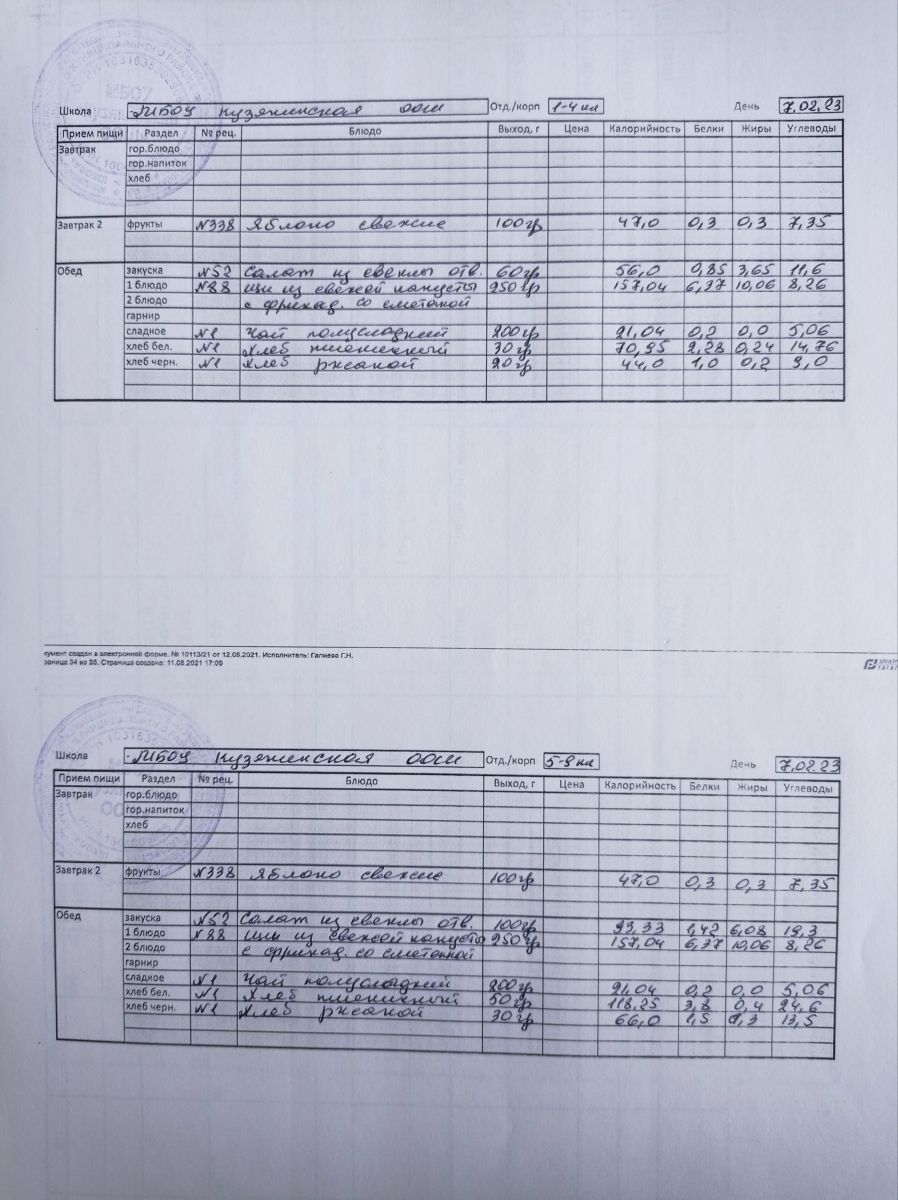 Школа МБОУ Кузякинская ООШ Отд./корп 1-4 кл День 7.02.23
Прием пищи Раздел № рец. Блюдо Выход, г Цена Калорийность Белки Жиры Углеводы
Завтрак гор.блюдо
гор.напиток
хлеб
Завтрак 2 фрукты №338 Яблоко свежие 100гр 47,0 0,3 0,3 7,35
Обед закуска №52 Салат из свеклы отв. 60гр 56,0 0,85 3,65 11,6
1 блюдо №88 Щи из свежей капусты 250гр 157,04 6,37 10,06 8,26
2 блюдо с фрикад. со сметаной
гарнир
сладкое №1 Чай полусладкий 200гр 21,04 0,2 0,0 5,06
хлеб бел. №1 Хлеб пшеничный 30гр 70,95 2,28 0,24 14,76
хлеб черн. №1 Хлеб ржаной 20гр 44,0 1,0 0,2 9,0
кумент создан в электронной форме. № 10113/21 от 12.08.2021. Исполнитель: Галиева Г.Н.
заница 34 из 35. Страница создана: 11.08.2021 17:09
Школа МБОУ Кузякинская ООШ Отд./корп 5-9 кл День 7.02.23
Прием пищи Раздел № рец. Блюдо Выход, г Цена Калорийность Белки Жиры Углеводы
Завтрак гор.блюдо
гор.напиток
хлеб
Завтрак 2 фрукты №338 Яблоко свежие 100гр 47,0 0,3 0,3 7,35
Обед закуска №52 Салат из свеклы отв. 100гр 93,33 1,42 6,08 19,3
1 блюдо №88 Щи из свежей капусты 250гр 157,04 6,37 10,06 8,26
2 блюдо с фрикад. со сметанной
гарнир
сладкое №1 Чай полусладкий 200гр 21,04 0,2 0,0 5,06
хлеб бел. №1 Хлеб пшеничный 50гр 118,25 3,8 0,4 24,6
хлеб черн. №1 Хлеб ржаной 30гр 66,0 1,5 0,3 13,5